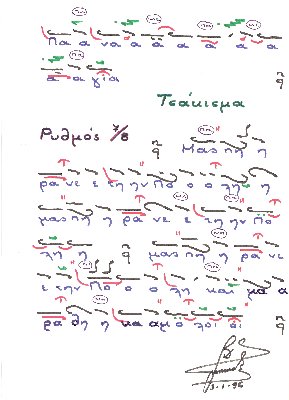 Πα α να α α α α α α
α α γι α
Τσάκισμα
Ρυθμός 7/8 Μας πη η
ρα νε ε τη ην Πο ο ο λη η
μας πη η ρα νε ε τη ην Πο
λη η μας πη η ρα νε
ε την Πο ο ο λη και μα α
ρα θη η κα αμο λοι οι
3-1-96